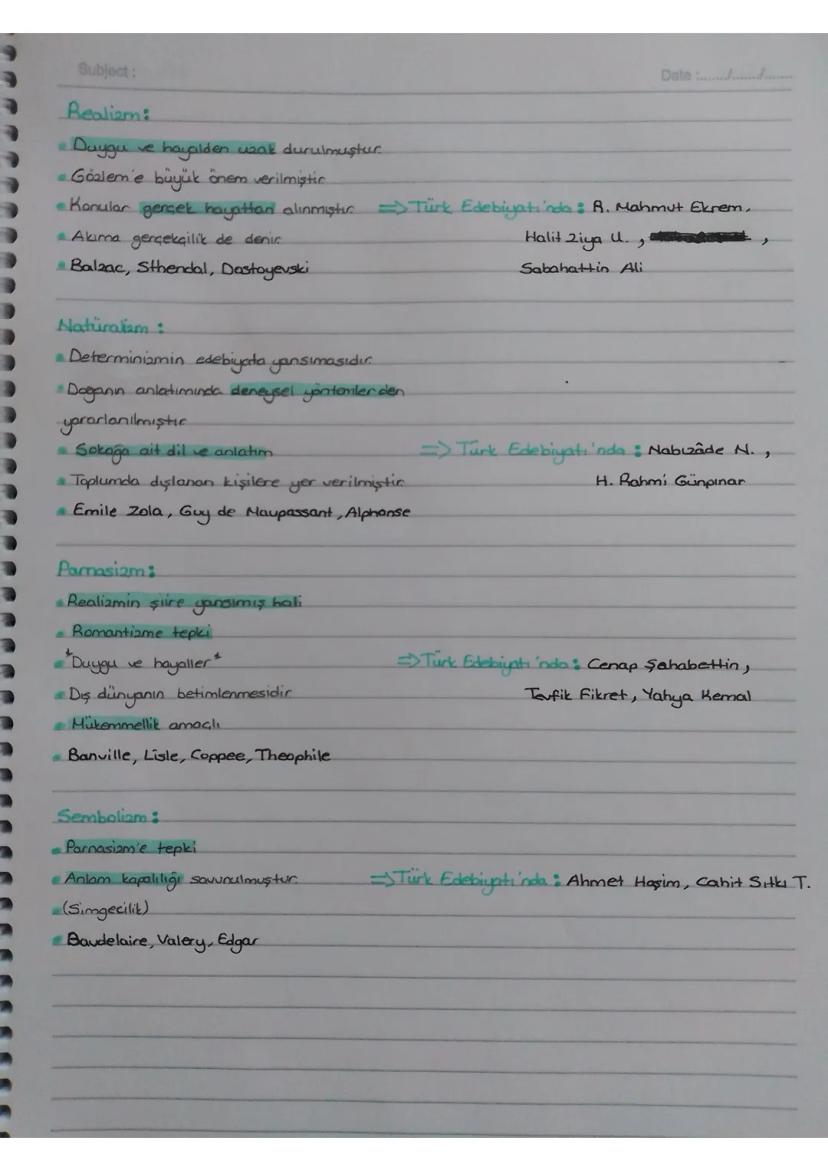 Subject :
Date :....../....../......
Realizm :
• Duygu ve hayalden uzak durulmuştur
• Gözlem'e büyük önem verilmiştir
• Konular gerçek hayattan alınmıştır ⇒ Türk Edebiyatı'nda : R. Mahmut Ekrem,
• Akıma gerçekçilik de denir Halit Ziya U. , ,
• Balzac, Sthendal, Dostoyevski Sabahattin Ali
Natüralizm :
• Determinizmin edebiyata yansımasıdır
• Doğanın anlatımında deneysel yöntemlerden
yararlanılmıştır
• Sokağa ait dil ve anlatım ⇒ Türk Edebiyatı'nda : Nabızâde N. ,
• Toplumda dışlanan kişilere yer verilmiştir H. Rahmi Günpınar
• Emile Zola, Guy de Maupassant, Alphonse
Parnasizm :
• Realizmin şiire yansımış hali
• Romantizme tepki
• *Duygu ve hayaller* ⇒ Türk Edebiyatı'nda : Cenap Şahabettin,
• Dış dünyanın betimlenmesidir Tevfik Fikret, Yahya Kemal
• Mükemmellik amaçlı
• Banville, Lisle, Coppee, Theophile
Sembolizm :
• Parnasizm'e tepki
• Anlam kapalılığı savunulmuştur ⇒ Türk Edebiyatı'nda : Ahmet Haşim, Cahit Sıtkı T.
• (Simgecilik)
• Baudelaire, Valery, Edgar